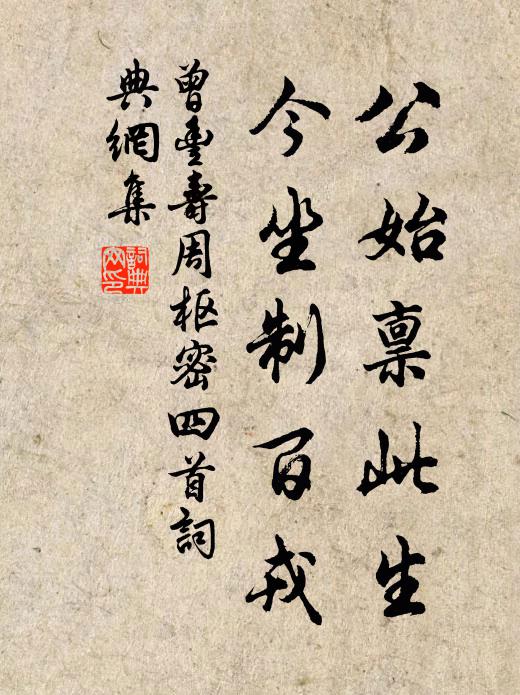 公始禀此生
今坐制百戎
曾丰寿周枢密四首词
典網集
詞典
网印